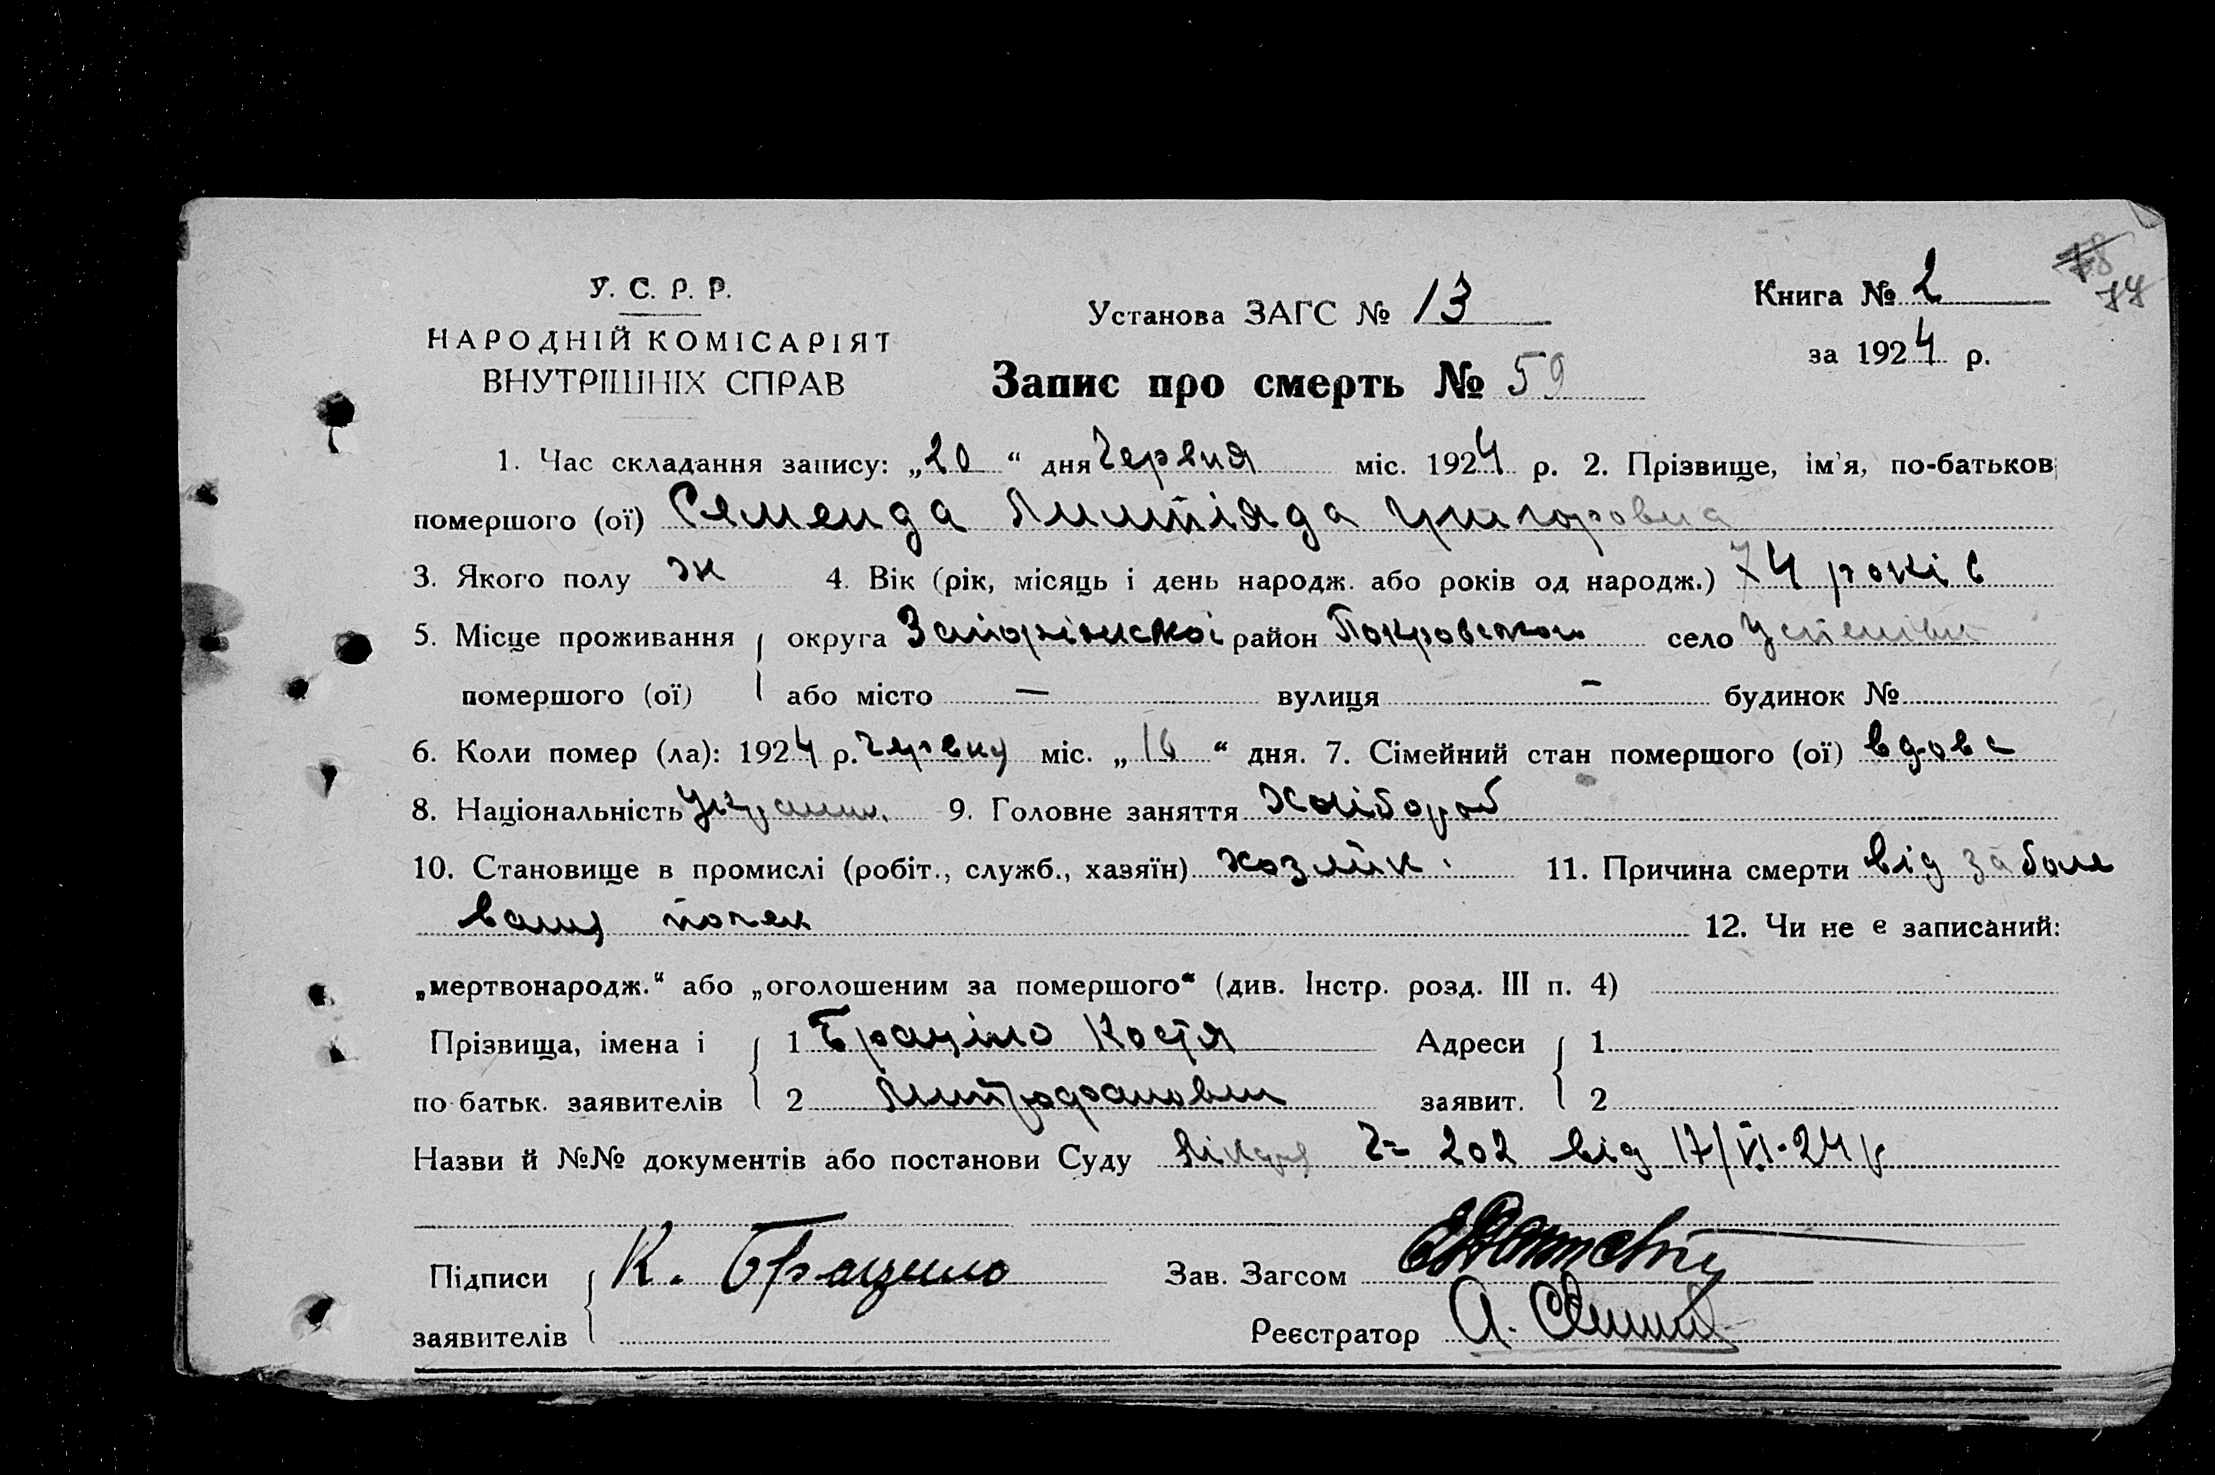 У. С. Р. Р.
НАРОДНІЙ КОМІСАРІЯТ
ВНУТРІШНІХ СПРАВ
Установа ЗАГС № 13
Книга № 2
за 1924 р.
78
74
Запис про смерть № 59
1. Час складання запису: „20“ дня Червня міс. 1924 р. 2. Прізвище, ім'я, по-батьков
помершого (ої) Семенда Григоровна
3. Якого полу ж 4. Вік (рік, місяць і день народж. або років од народж.) 74 років
5. Місце проживання округа Запоріжскої район Покровського село Успенівка
помершого (ої) або місто — вулиця — будинок №
6. Коли помер (ла): 1924 р. червня міс. „16“ дня. 7. Сімейний стан помершого (ої) вдова
8. Національність Україн. 9. Головне заняття хлібороб
10. Становище в промислі (робіт., служб., хазяїн) хозяйк. 11. Причина смерти від заболе
ваня почек
12. Чи не є записаний:
„мертвонародж.“ або „оголошеним за помершого“ (див. Інстр. розд. III п. 4)
Прізвища, імена і 1 Браціло Костя Адреси 1
по батьк. заявителів 2 Митрофанович заявит. 2
Назви й №№ документів або постанови Суду Лікаря 202 від 17/VI-24 р
Підписи К. Брацило Зав. Загсом
заявителів Реєстратор А.